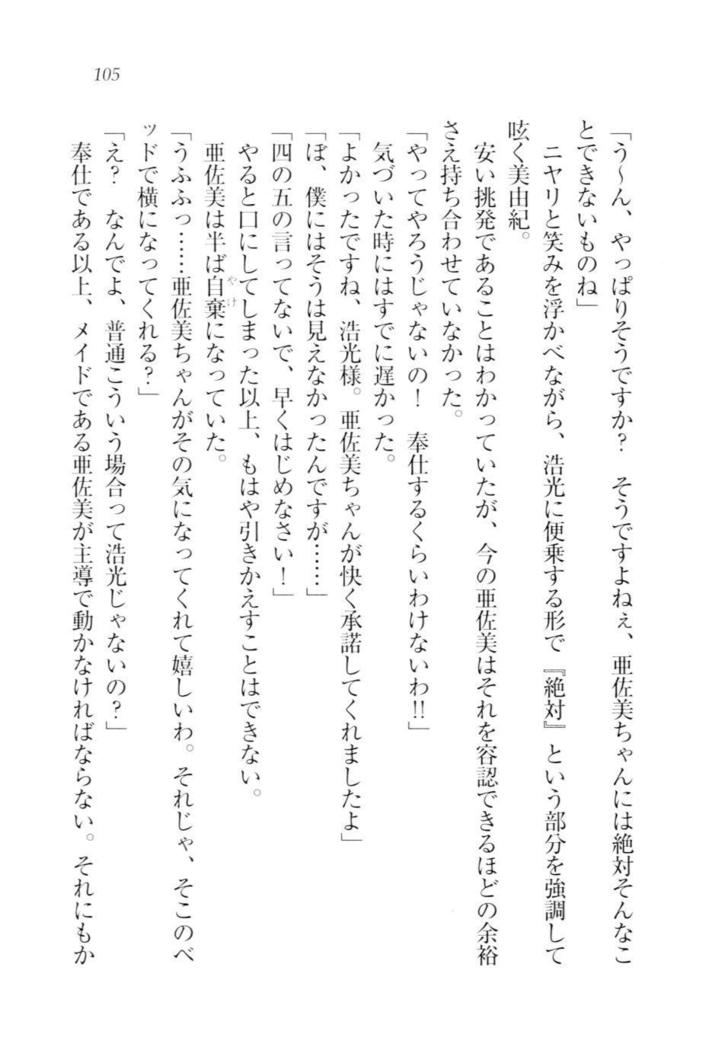 105
「う～ん、やっぱりそうですか？　そうですよねぇ、亜佐美ちゃんには絶対そんなこ
とできないものね」
　ニヤリと笑みを浮かべながら、浩光に便乗する形で『絶対』という部分を強調して
呟く美由紀。
　安い挑発であることはわかっていたが、今の亜佐美はそれを容認できるほどの余裕
さえ持ち合わせていなかった。
「やってやろうじゃないの！　奉仕するくらいわけないわ!!」
　気づいた時にはすでに遅かった。
「よかったですね、浩光様。亜佐美ちゃんが快く承諾してくれましたよ」
「ぼ、僕にはそうは見えなかったんですが……」
「四の五の言ってないで、早くはじめなさい！」
　やると口にしてしまった以上、もはや引きかえすことはできない。
　亜佐美は半ば自棄やけになっていた。
「うふふっ……亜佐美ちゃんがその気になってくれて嬉しいわ。それじゃ、そこのベ
ッドで横になってくれる？」
「え？　なんでよ、普通こういう場合って浩光じゃないの？」
　奉仕である以上、メイドである亜佐美が主導で動かなければならない。それにもか